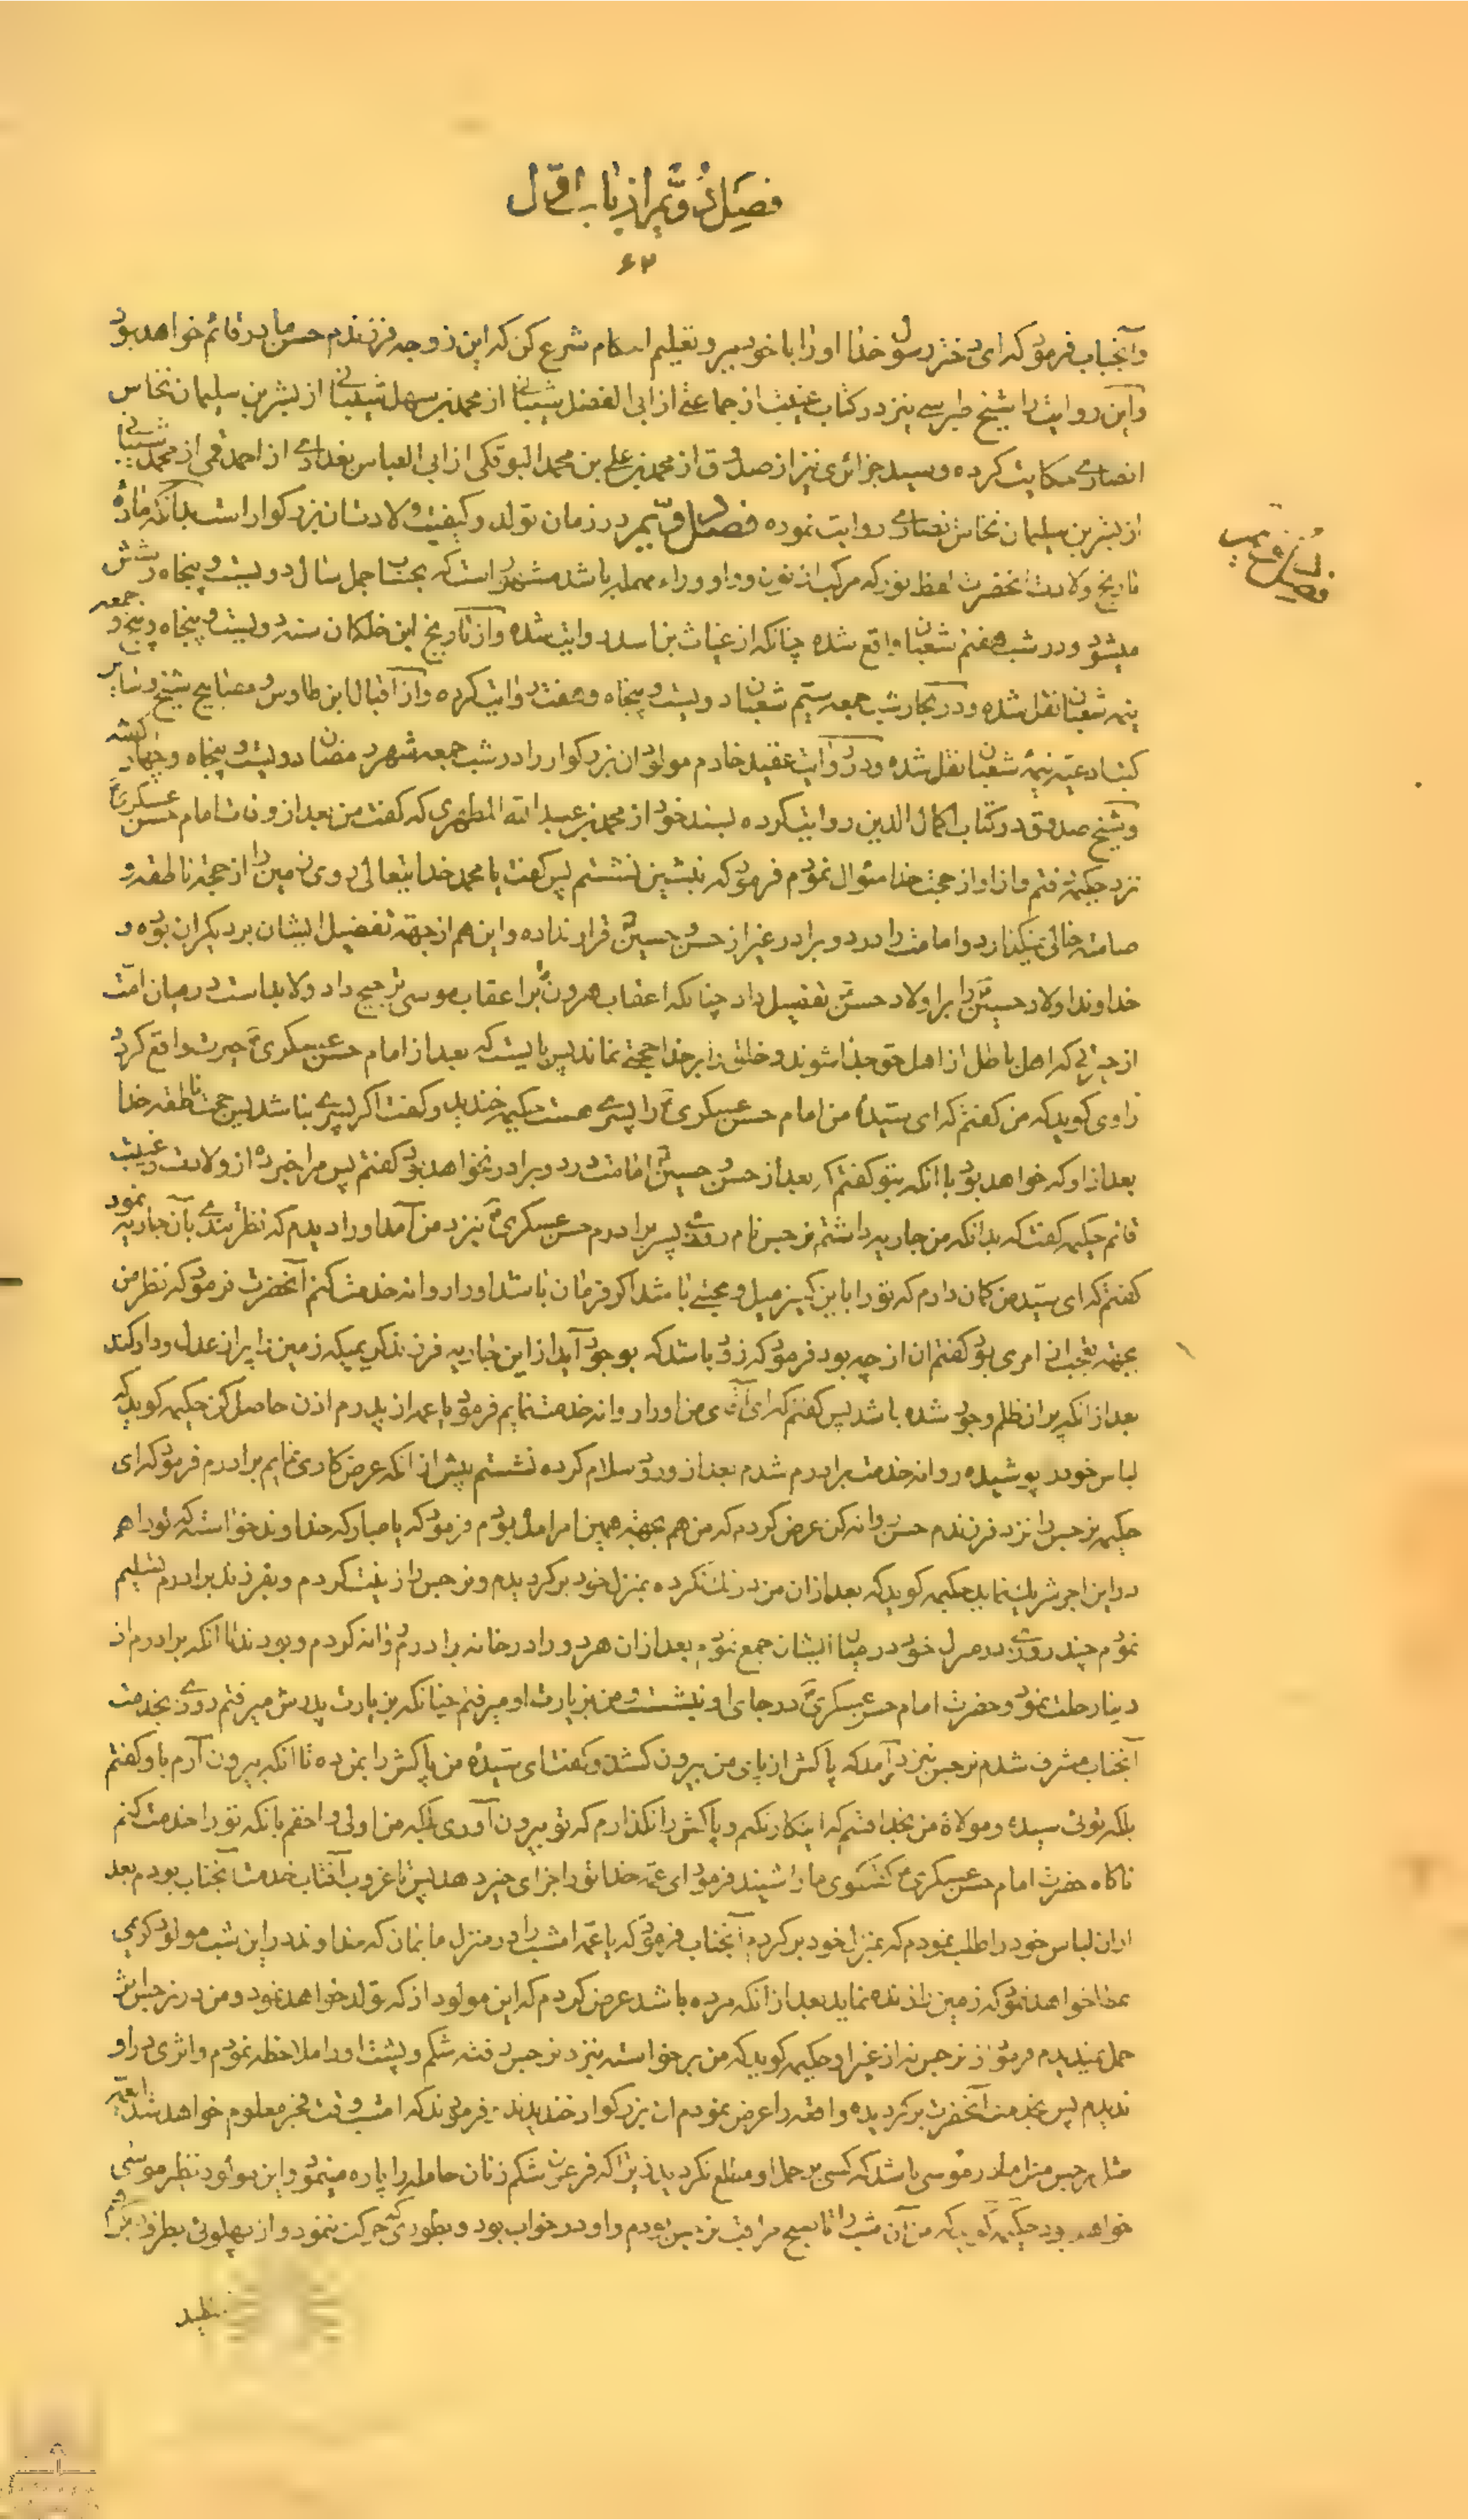 فصل دویم از باب اول
۶۲
وآنجناب فرمود که ای دختر رسول خدا اورا با خود ببر و تعلیم احکام شرع کن که این زوجه فرزندم حسن مادر قائم خواهد بود
واین روایت را شیخ طبرسی نیز در کتاب غیبت از جماعتی از ابی الفضل شیبانی از محمد بن سهل شیبانی از بشر بن سلیمان نخاس
انصاری حکایت کرده و سید جزائری نیز از صدوق از محمد بن علی بن محمد النوفلی از ابی العباس بغدادی از احمد قمی از محمد شیبانی
از بشر بن سلیمان نخاس انصاری روایت نموده فصل دویم در زمان تولد و کیفیت ولادت آن بزرکوار است بدانکه مادهٔ
تاریخ ولادت انحضرت لفظ نور که مرکب از نون و واو وراء مهمله باشد مشهور است که بحساب جمل سال دویست و پنجاه وشش
میشود ودر شب هفتم شعبان واقع شده چنانکه از غیاث بن اسد روایت شده واز تاریخ ابن خلکان سنه دویست و پنجاه و پنج و جمعه
نیمه شعبان نقل شده ودر بحار شب جمعه سیم شعبان دویست و پنجاه وهفت روایت کرده واز اقبال ابن طاوس و مصابیح شیخ وسایر
کتب ادعیه نیمهٔ شعبان نقل شده ودر روایت عقید خادم مولود ان بزرکوار را در شب جمعه شهر رمضان دویست و پنجاه وچهار کشته
وشیخ صدوق در کتاب اکمال الدین روایت کرده بسند خود از محمد بن عبدالله المطهری که کفت من بعد از وفات امام حسن عسکری
نزد حکیمه رفتم واز او از حجت خدا سئوال نمودم فرمود که بنشین نشستم پس کفت یا محمد خدایتعالی روی زمین را از حجة ناطقه و
صامته خالی نمیکذارد وامامت را در دو برادر غیر از حسن و حسین قرار نداده واین هم از جهة تفضیل ایشان بر دیکران بوده و
خداوند اولاد حسین را بر اولاد حسن تفضیل داد چنانکه اعقاب هرون را بر اعقاب موسی ترجیح داد ولابد است در میان امت
از حیرتی که اهل باطل از اهل حق جدا شوند و خلق را بر خدا حجتی نماند پس بایست که بعد از امام حسن عسکری حیرت واقع کردد
راوی کوید که من کفتم که ای سیدهٔ من امام حسن عسکری را پسری هست حکیمه خندید و کفت اکر پسری نباشد پس حجت ناطقه خدا
بعد از او که خواهد بود با انکه بتو کفتم که بعد از حسن و حسین امامت در دو برادر نخواهد بود کفتم پس مرا خبر ده از ولادت و غیبت
قائم حکیمه کفت که بدانکه من جاریه داشتم نرجس نام روزی پسر برادرم حسن عسکری بنزد من آمد اورا دیدم که نظر تندی بآن جاریه نمود
کفتم که ای سید من کمان دارم که تو را باین کنیز میل و محبتی باشد اکر فرمان باشد اورا روانه خدمت کنم آنحضرت فرمود که نظر من
بجهة تعجب از امری بود کفتم ان از چه بود فرمود که زود باشد که بوجود آید از این جاریه فرزند کریمی که زمین را پر از عدل و داد کند
بعد از انکه پر از ظلم و جور شده باشد پس کفتم که ای آقای من اورا روانه خدمت نمایم فرمود یا عمه از پدرم اذن حاصل کن حکیمه کوید که
لباس خود پوشیده روانه خدمت برادرم شدم بعد از ورود سلام کرده نشستم پیش از انکه عرض کاری نمایم برادرم فرمود که ای
حکیمه نرجس را نزد فرزندم حسن روانه کن عرض کردم که من هم بجهة همین امر امده بودم فرمود که یا مبارکه خداوند خواسته که تورا هم
در این اجر شریک نماید حکیمه کوید که بعد از ان من درنک نکرده بمنزل خود برکردیدم و نرجس را زینت کردم و بفرزند برادرم تسلیم
نمودم چند روزی در منزل خود در میان ایشان جمع نمودم بعد از ان هر دو را در خانه برادرم روانه کردم و بودند تا انکه برادرم از
دنیا رحلت نمود وحضرت امام حسن عسکری در جای او نشست ومن بزیارت او میرفتم چنانکه بزیارت پدرش میرفتم روزی بخدمت
آنجناب مشرف شدم نرجس نزد من آمد که پاکش از پای من بیرون کشد و کفت ای سیدهٔ من پاکش را بمن ده تا انکه بیرون آرم باو کفتم
بلکه توئی سیده و مولاة من بخدا قسم که اینکار نکنم و پاکش را نکذارم که تو بیرون آوری بلکه من اولی و احقم بانکه تورا خدمت کنم
ناکاه حضرت امام حسن عسکری کفتکوی مارا شنیند فرمود ای عمه خدا تورا جزای خیر دهد پس تا غروب آفتاب خدمت آنجناب بودم بعد
ازان لباس خود را طلب نمودم که بمنزل خود برکردم آنجناب فرمود که یا عمه امشب را در منزل ما بمان که خداوند در این شب مولود کریمی
عطا خواهد نمود که زمین را زنده نماید بعد از انکه مرده باشد عرض کردم که این مولود از که تولد خواهد نمود ومن در نرجس اثر
حمل نمیدیدم فرمود از نرجس نه از غیر او حکیمه کوید که من برخواسته بنزد نرجس رفته شکم و پشت اورا ملاحظه نمودم واثری در او
ندیدم پس بخدمت آنحضرت برکردیده واقعه را عرض نمودم ان بزرکوار خندیدند و فرمودند که امشب وقت فجر معلوم خواهد شد
مثل نرجس مثل مادر موسی باشد که کسی بر حمل او مطلع نکردید زیرا که فرعون شکم زنان حامله را پاره مینمود واین مولود نظیر موسی
خواهد بود حکیمه کوید که من آن شب را تا صبح مراقب نرجس بودم واو در خواب بود وبطوری که حرکت ننمود واز پهلوئی بطرف دیکر
فصل دویم